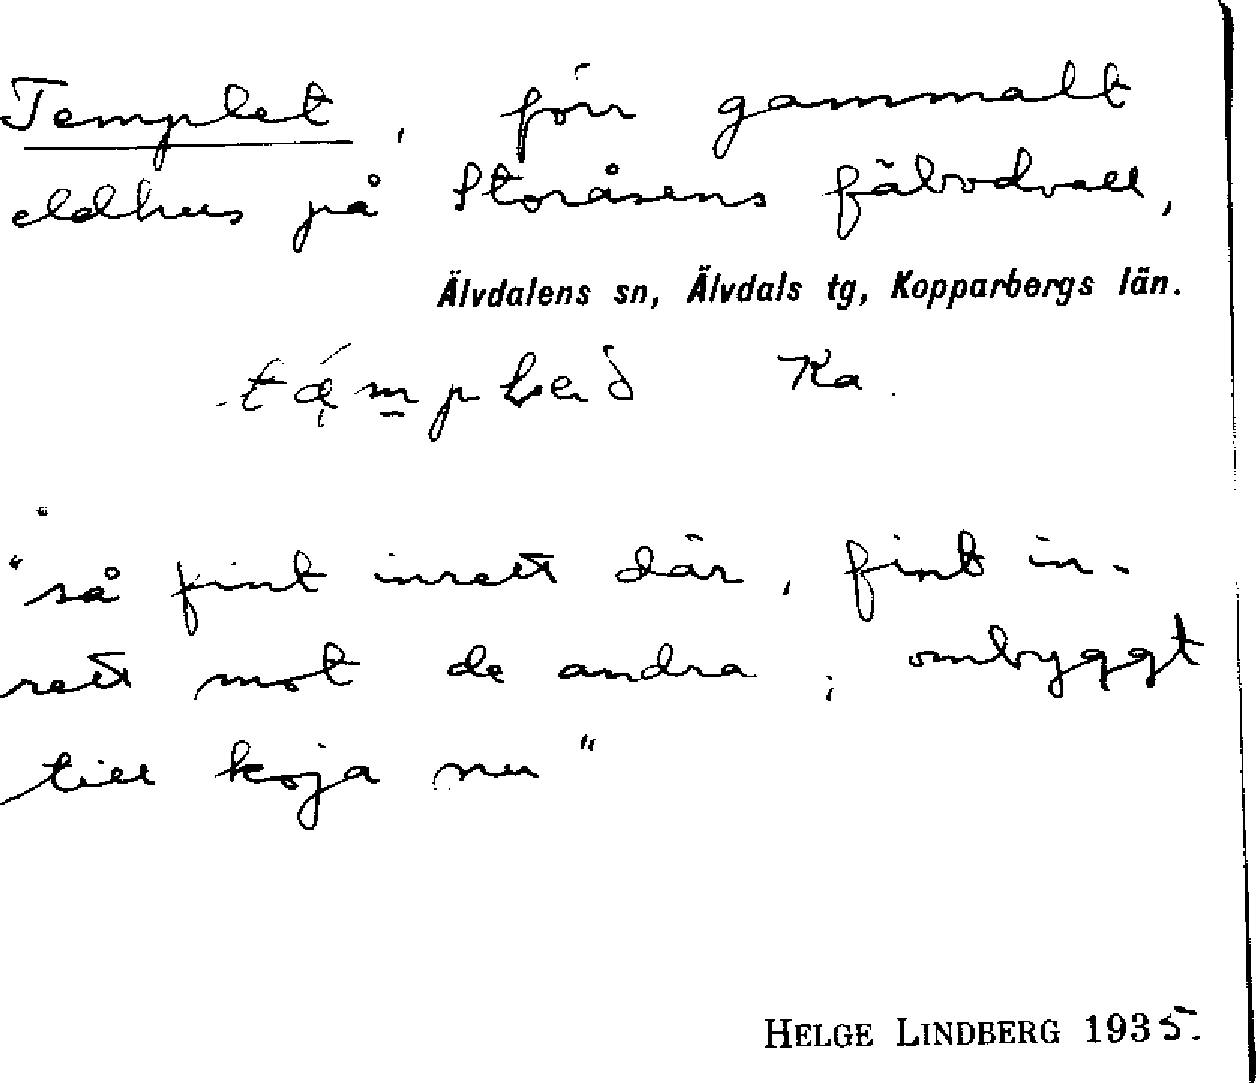 Templet, förr gammalt
eldhus på Storåsens fäbodvall,
Älvdalens sn, Älvdals tg, Kopparbergs län.
Ka
"så fint inrett där, fint in-
rett mot de andra; ombyggt
till koja nu"
HELGE LINDBERG 1935.